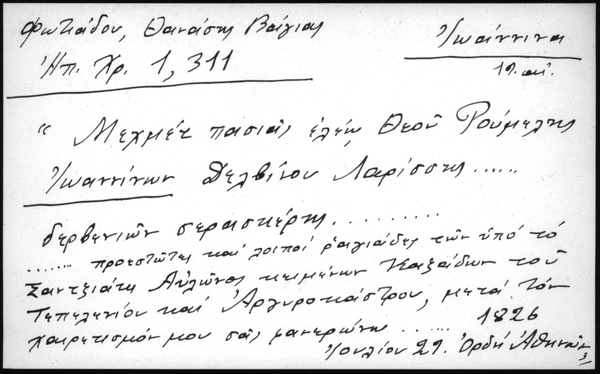 Φωτιάδου, Θανάσης Βάγιας
Ἠπ. Χρ. 1, 311
Ἰωάννινα
19. αἰ.
" Μεχμέτ πασιᾶς ἐλέῳ Θεοῦ Ρούμελης
Ἰωαννίνων Δελβίνου Λαρίσσης ......
δερβενιῶν σερασκέρης .........
....... προεστῶτες καί λοιποί ραγιάδες τῶν ὑπό τό
Σαντζιάτι Αὐλῶνος κειμένων Καζάδων τοῦ
Τεπελενίου καί Ἀργυροκάστρου, μετά τόν
χαιρετισμόν μου σᾶς φανερώνω ...... 1826
Ἰουλίου 29. Ὀρδί Ἀθηνῶν